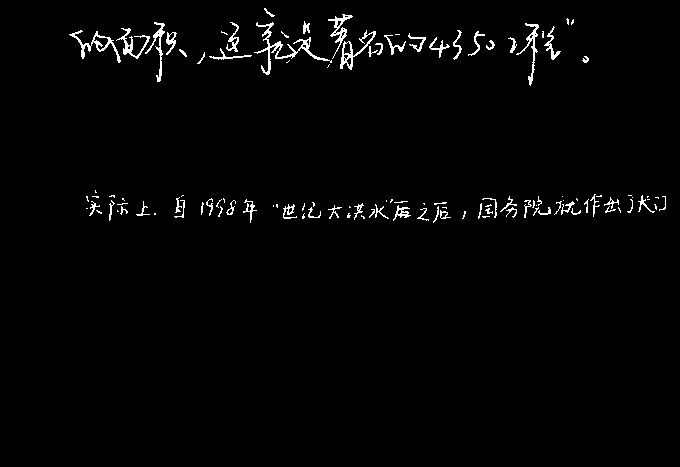 的面积,这就是著名的4350工程"。
实际上.自1998年"世纪大洪水"后之后,国务院就作出了对